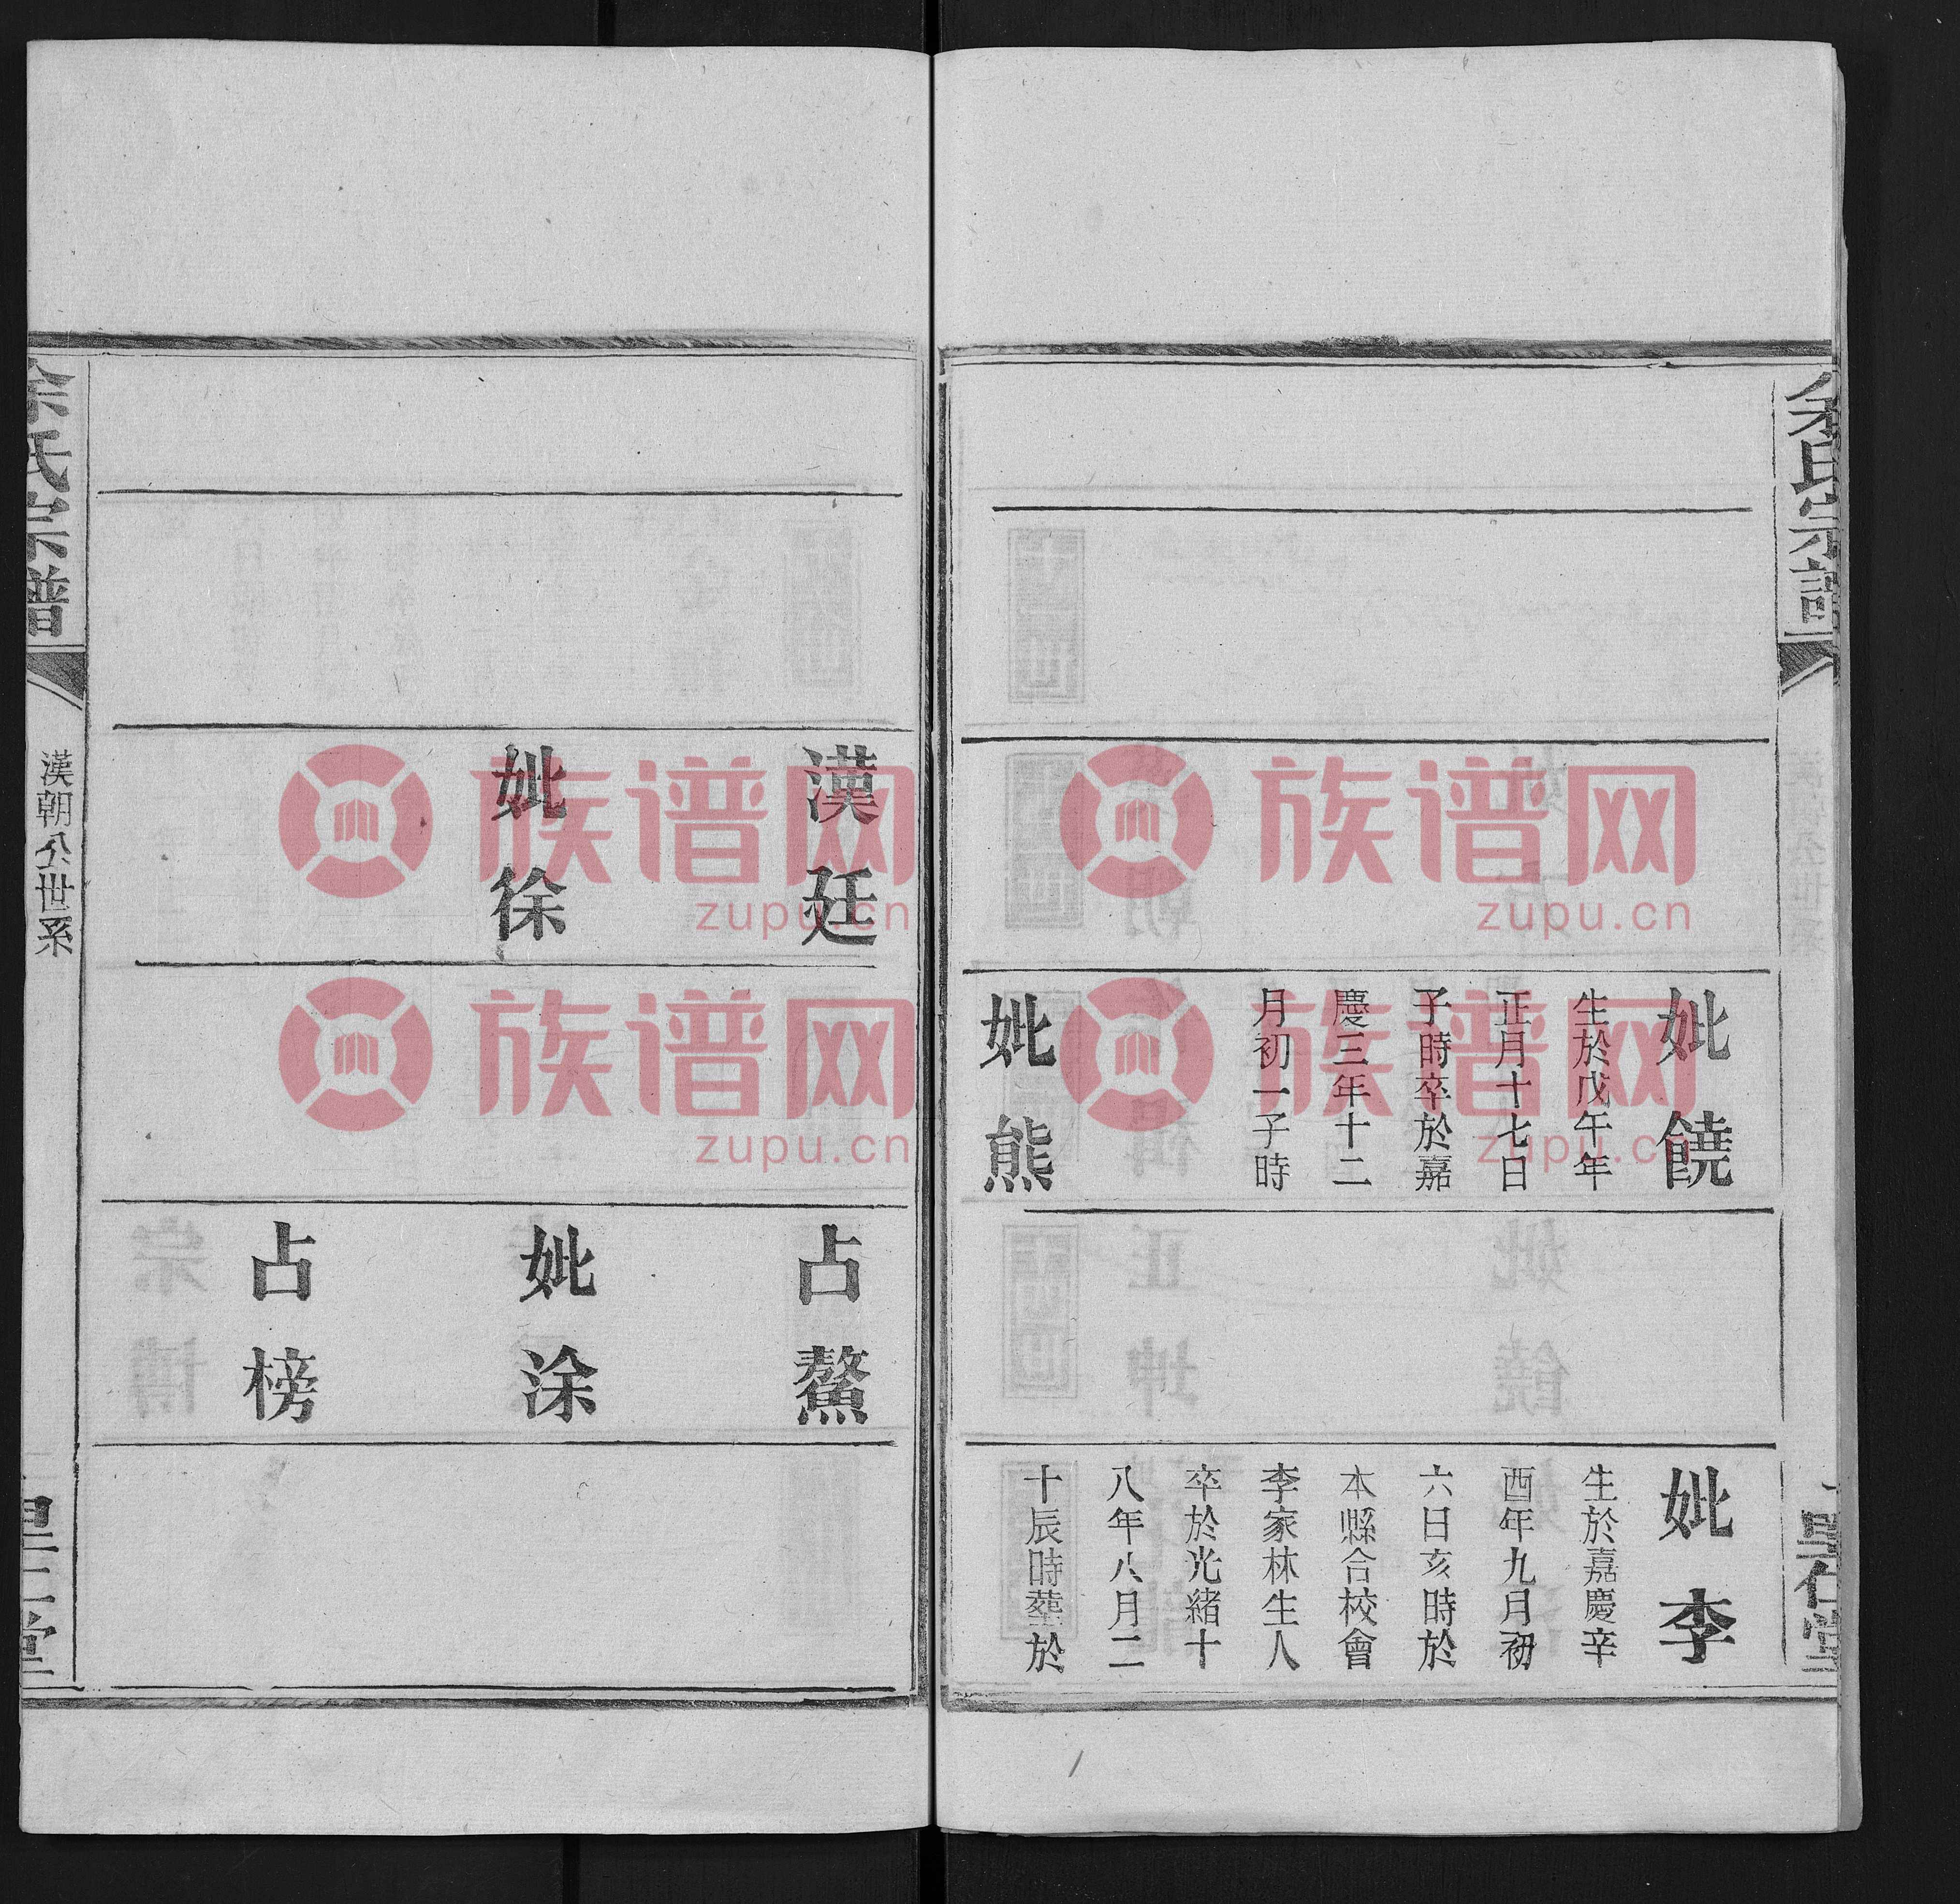 余氏宗譜
妣饒
生於戊午年
正月十七日
子時卒於嘉
慶三年十二
月初一子時
妣熊
妣李
生於嘉慶辛
酉年九月初
六日亥時於
本縣合校會
李家林生人
卒於光緒十
八年八月二
十辰時塟於
漢廷
妣徐
占鰲
妣涂
占榜
余氏宗譜
漢朝公世系
族谱网
zupu.cn
族谱网
zupu.cn
族谱网
zupu.cn
族谱网
zupu.cn